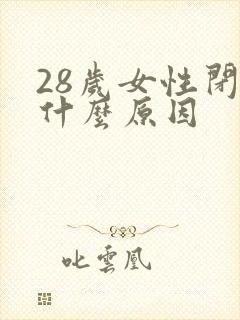 28歲女性閉
什麼原因
叱雲凰